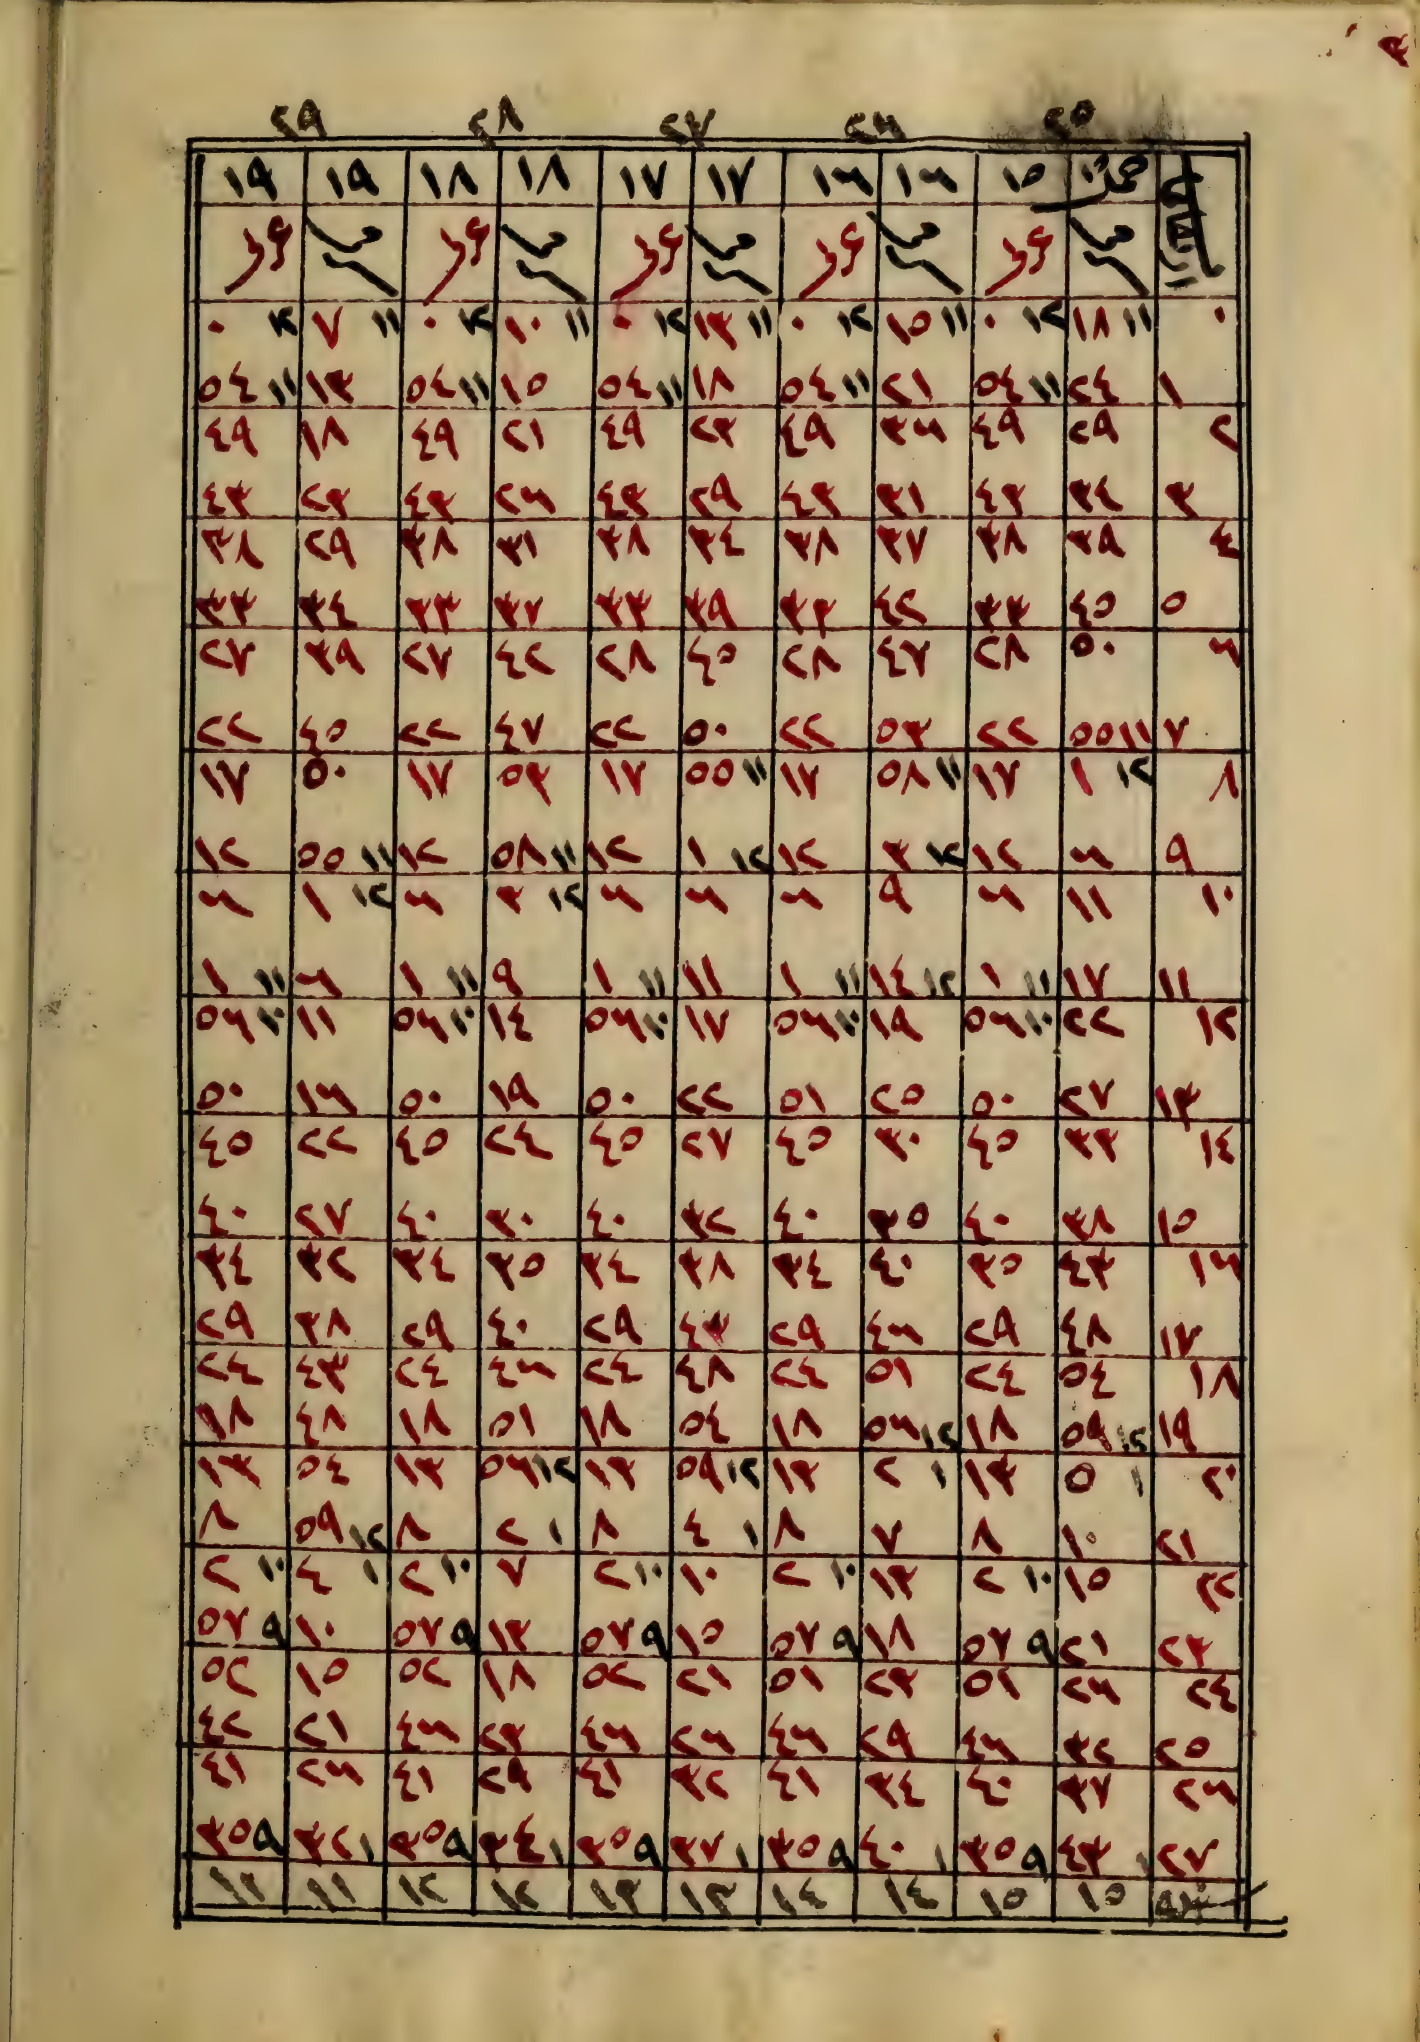 ٢٥ ٢٦ ٢٧ ٢٨ ٢٩
١٥ ١٦ ١٦ ١٧ ١٧ ١٨ ١٨ ١٩ ١٩
٠ ١١ ١٨ ١٢ ٠ ١١ ١٥ ١٢ ٠ ١١ ١٣ ١٢ ٠ ١١ ١٠ ١٢ ٠ ١١ ٧ ١٢ ٠
١ ٢٤ ١١ ٥٤ ٢١ ١١ ٥٤ ١٨ ١١ ٥٤ ١٥ ١١ ٥٤ ١٣ ١١ ٥٤
٢ ٢٩ ٤٩ ٣٦ ٤٩ ٢٣ ٤٩ ٢١ ٤٩ ١٨ ٤٩
٣ ٣٤ ٤٣ ٣١ ٤٣ ٢٩ ٤٣ ٢٦ ٤٣ ٢٣ ٤٣
٤ ٣٩ ٣٨ ٣٧ ٣٨ ٣٤ ٣٨ ٣١ ٣٨ ٢٩ ٣٨
٥ ٤٥ ٣٣ ٤٢ ٣٣ ٣٩ ٣٣ ٣٧ ٣٣ ٣٤ ٣٣
٦ ٥٠ ٢٨ ٤٧ ٢٨ ٤٥ ٢٨ ٤٢ ٢٧ ٣٩ ٢٧
٧ ١١ ٥٥ ٢٢ ٥٣ ٢٢ ٥٠ ٢٢ ٤٧ ٢٢ ٤٥ ٢٢
٨ ١٢ ١ ١٧ ١١ ٥٨ ١٧ ١١ ٥٥ ١٧ ٥٣ ١٧ ٥٠ ١٧
٩ ٦ ١٢ ١٢ ٣ ١٢ ١٢ ١ ١٢ ١١ ٥٨ ١٢ ١١ ٥٥ ١٢
١٠ ١١ ٦ ٩ ٦ ٦ ٦ ١٢ ٣ ٦ ١٢ ١ ٦
١١ ١٧ ١١ ١ ١٢ ١٤ ١١ ١ ١١ ١١ ١ ٩ ١١ ١ ٦ ١١ ١
١٢ ٢٢ ١٠ ٥٦ ١٩ ١٠ ٥٦ ١٧ ١٠ ٥٦ ١٤ ١٠ ٥٦ ١١ ١٠ ٥٦
١٣ ٢٧ ٥٠ ٢٥ ٥١ ٢٢ ٥٠ ١٩ ٥٠ ١٦ ٥٠
١٤ ٣٣ ٤٥ ٣٠ ٤٥ ٢٧ ٤٥ ٢٤ ٤٥ ٢٢ ٤٥
١٥ ٣٨ ٤٠ ٣٥ ٤٠ ٣٢ ٤٠ ٣٠ ٤٠ ٢٧ ٤٠
١٦ ٤٣ ٣٥ ٤٠ ٣٤ ٣٨ ٣٤ ٣٥ ٣٤ ٣٢ ٣٤
١٧ ٤٨ ٢٩ ٤٦ ٢٩ ٤٣ ٢٩ ٤٠ ٢٩ ٣٨ ٢٩
١٨ ٥٤ ٢٤ ٥١ ٢٤ ٤٨ ٢٤ ٤٦ ٢٤ ٤٣ ٢٤
١٩ ١٢ ٥٩ ١٨ ١٢ ٥٦ ١٨ ٥٤ ١٨ ٥١ ١٨ ٤٨ ١٨
٢٠ ١ ٥ ١٣ ١ ٢ ١٣ ١٢ ٥٩ ١٣ ١٢ ٥٦ ١٣ ٥٤ ١٣
٢١ ١٠ ٨ ٧ ٨ ١ ٤ ٨ ١ ٢ ٨ ١٢ ٥٩ ٨
٢٢ ١٥ ١٠ ٢ ١٣ ١٠ ٢ ١٠ ١٠ ٢ ٧ ١٠ ٢ ١ ٤ ١٠ ٢
٢٣ ٢١ ٩ ٥٧ ١٨ ٩ ٥٧ ١٥ ٩ ٥٧ ١٣ ٩ ٥٧ ١٠ ٩ ٥٧
٢٤ ٢٦ ٥١ ٢٣ ٥١ ٢١ ٥٢ ١٨ ٥٢ ١٥ ٥٢
٢٥ ٣٢ ٤٦ ٢٩ ٤٦ ٢٦ ٤٦ ٢٣ ٤٦ ٢١ ٤٢
٢٦ ٣٧ ٤٠ ٣٤ ٤١ ٣٢ ٤١ ٢٩ ٤١ ٢٦ ٤١
٢٧ ١ ٤٣ ٩ ٣٥ ١ ٤٠ ٩ ٣٥ ١ ٣٧ ٩ ٣٥ ١ ٣٤ ٩ ٣٥ ١ ٣٢ ٩ ٣٥
١٥ ١٥ ١٤ ١٤ ١٣ ١٣ ١٢ ١٢ ١١ ١١